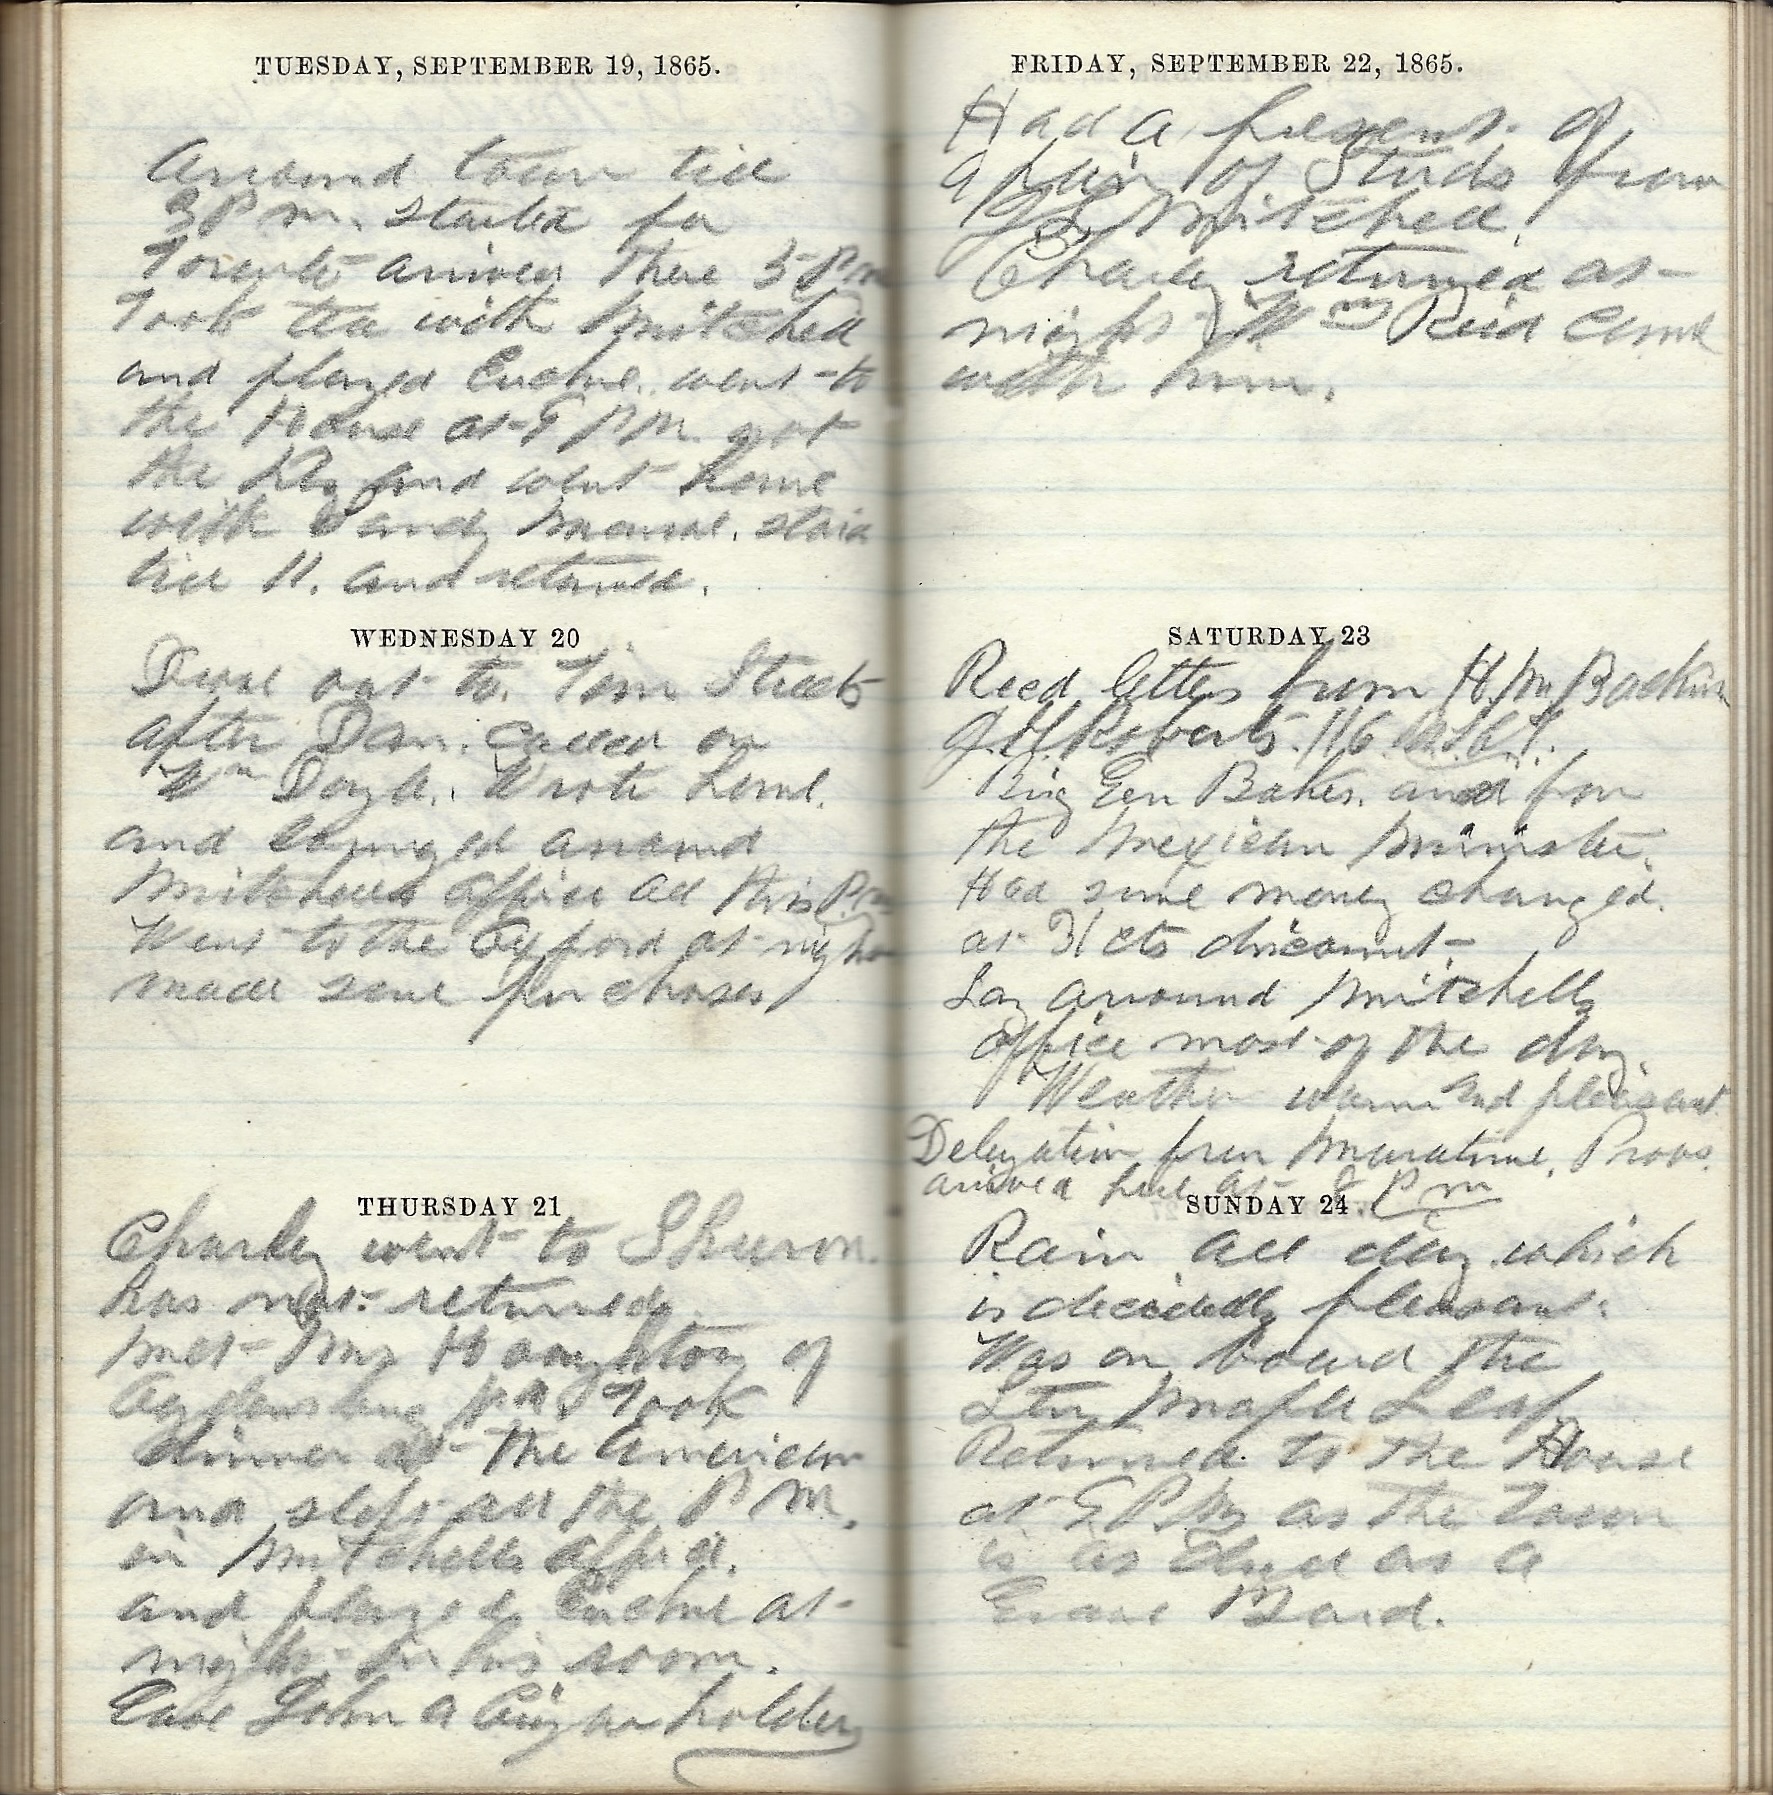 TUESDAY, SEPTEMBER 19, 1865.
Around town till
3 P m. started for
Toronto arrived there 5 P.m
Took tea with Mitchell
and played Euchre. went to
the House at 9 P M. got
the and went home
with Sandy staid
till 11. and returned.
WEDNESDAY 20
Drove out to Tim Streets
after Dan. Called on
Wm Doyle. Wrote home.
and lounged around
Mitchells office all this P.m
Went to the Oxford at night
made some purchases
THURSDAY 21
Charley went to Sharon.
has not returned.
Met Mrs Houghton of
Took
dinner at the American
and slept all the P M.
in Mitchells office.
and played Euchre at
night in his room.
Gave John a Cigar holder
FRIDAY, SEPTEMBER 22, 1865.
Had a present of
a pair of Studs from
Mitchell.
Charley returned at
night Wm Reid came
with him.
SATURDAY 23
Recd letters from H. M. Backus
J. H. Roberts. 116
Brig Gen Baker. and from
the Mexican Minister.
Had some money changed.
at 31 cts discount.
Lay around Mitchells
office most of the day.
Weather warm and pleasant
Delegation from Maratime Provs.
arrived here at 8 P m
SUNDAY 24.
Rain all day which
is decidedly pleasant.
Was on board the
Stmr Maple Leaf
Returned to the House
at 9 P M as the Town
is as dull as a
Grave Yard.